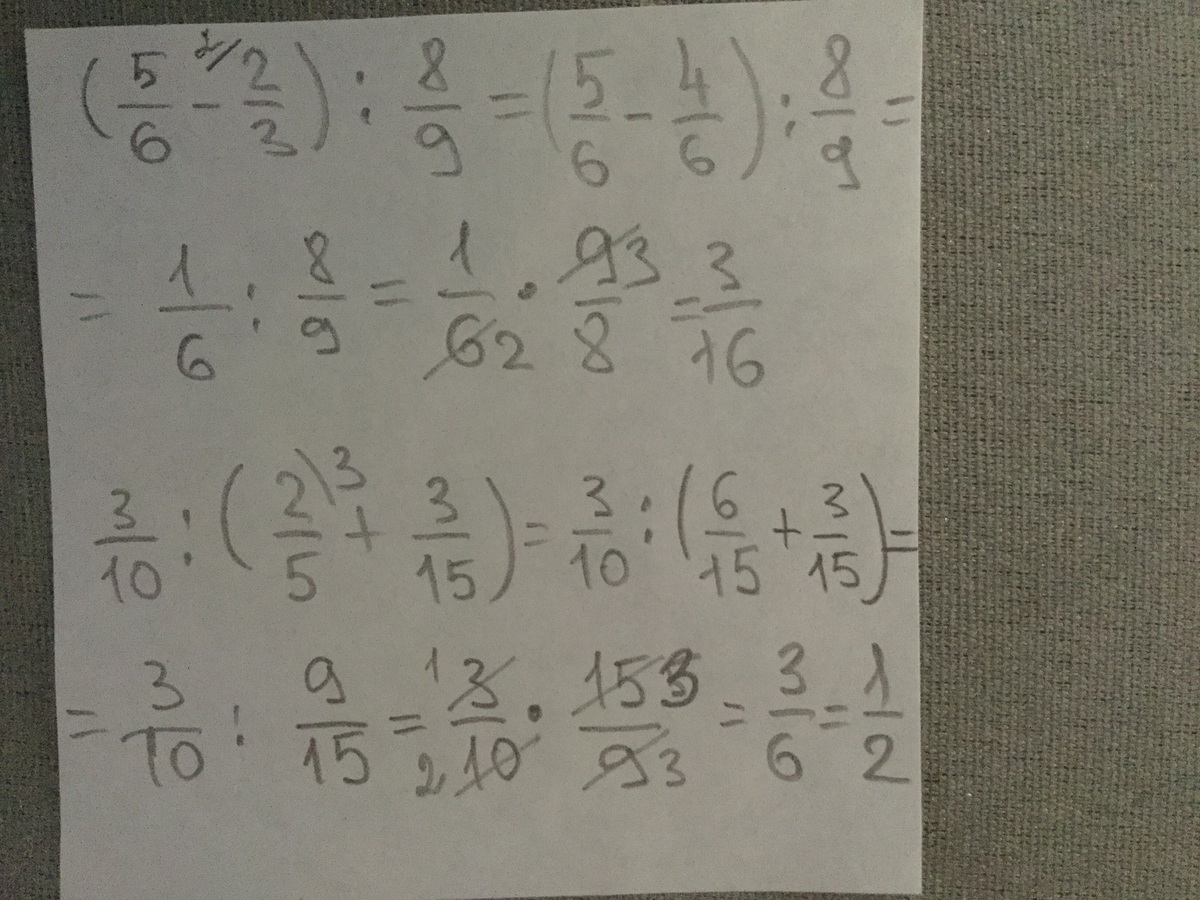 (5/6 - 2/ 2/3) : 8/9 = (5/6 - 4/6) : 8/9 =
= 1/6 : 8/9 = 1/6 2 · 9 3/8 = 3/16
3/10 : (2\3/5 + 3/15) = 3/10 : (6/15 + 3/15) =
= 3/10 : 9/15 = 1 3/2 10 · 15 3/9 3 = 3/6 = 1/2